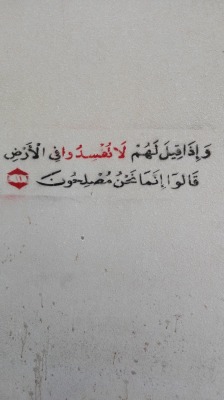 وَإِذَا قِيلَ لَهُمْ لَا تُفْسِدُوا فِي الْأَرْضِ
قَالُوا إِنَّمَا نَحْنُ مُصْلِحُونَ